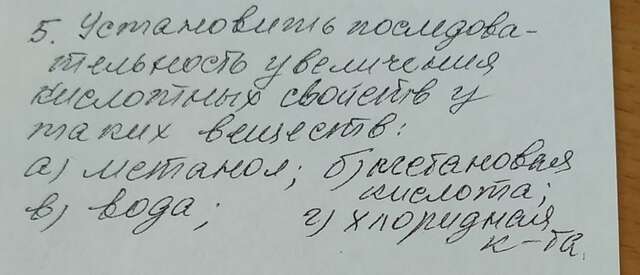 5. Установить последова-
тельность увеличения
кислотных свойств у
таких веществ:
а) метанол; б) метановая
кислота;
в) вода; г) хлоридная
к-та.